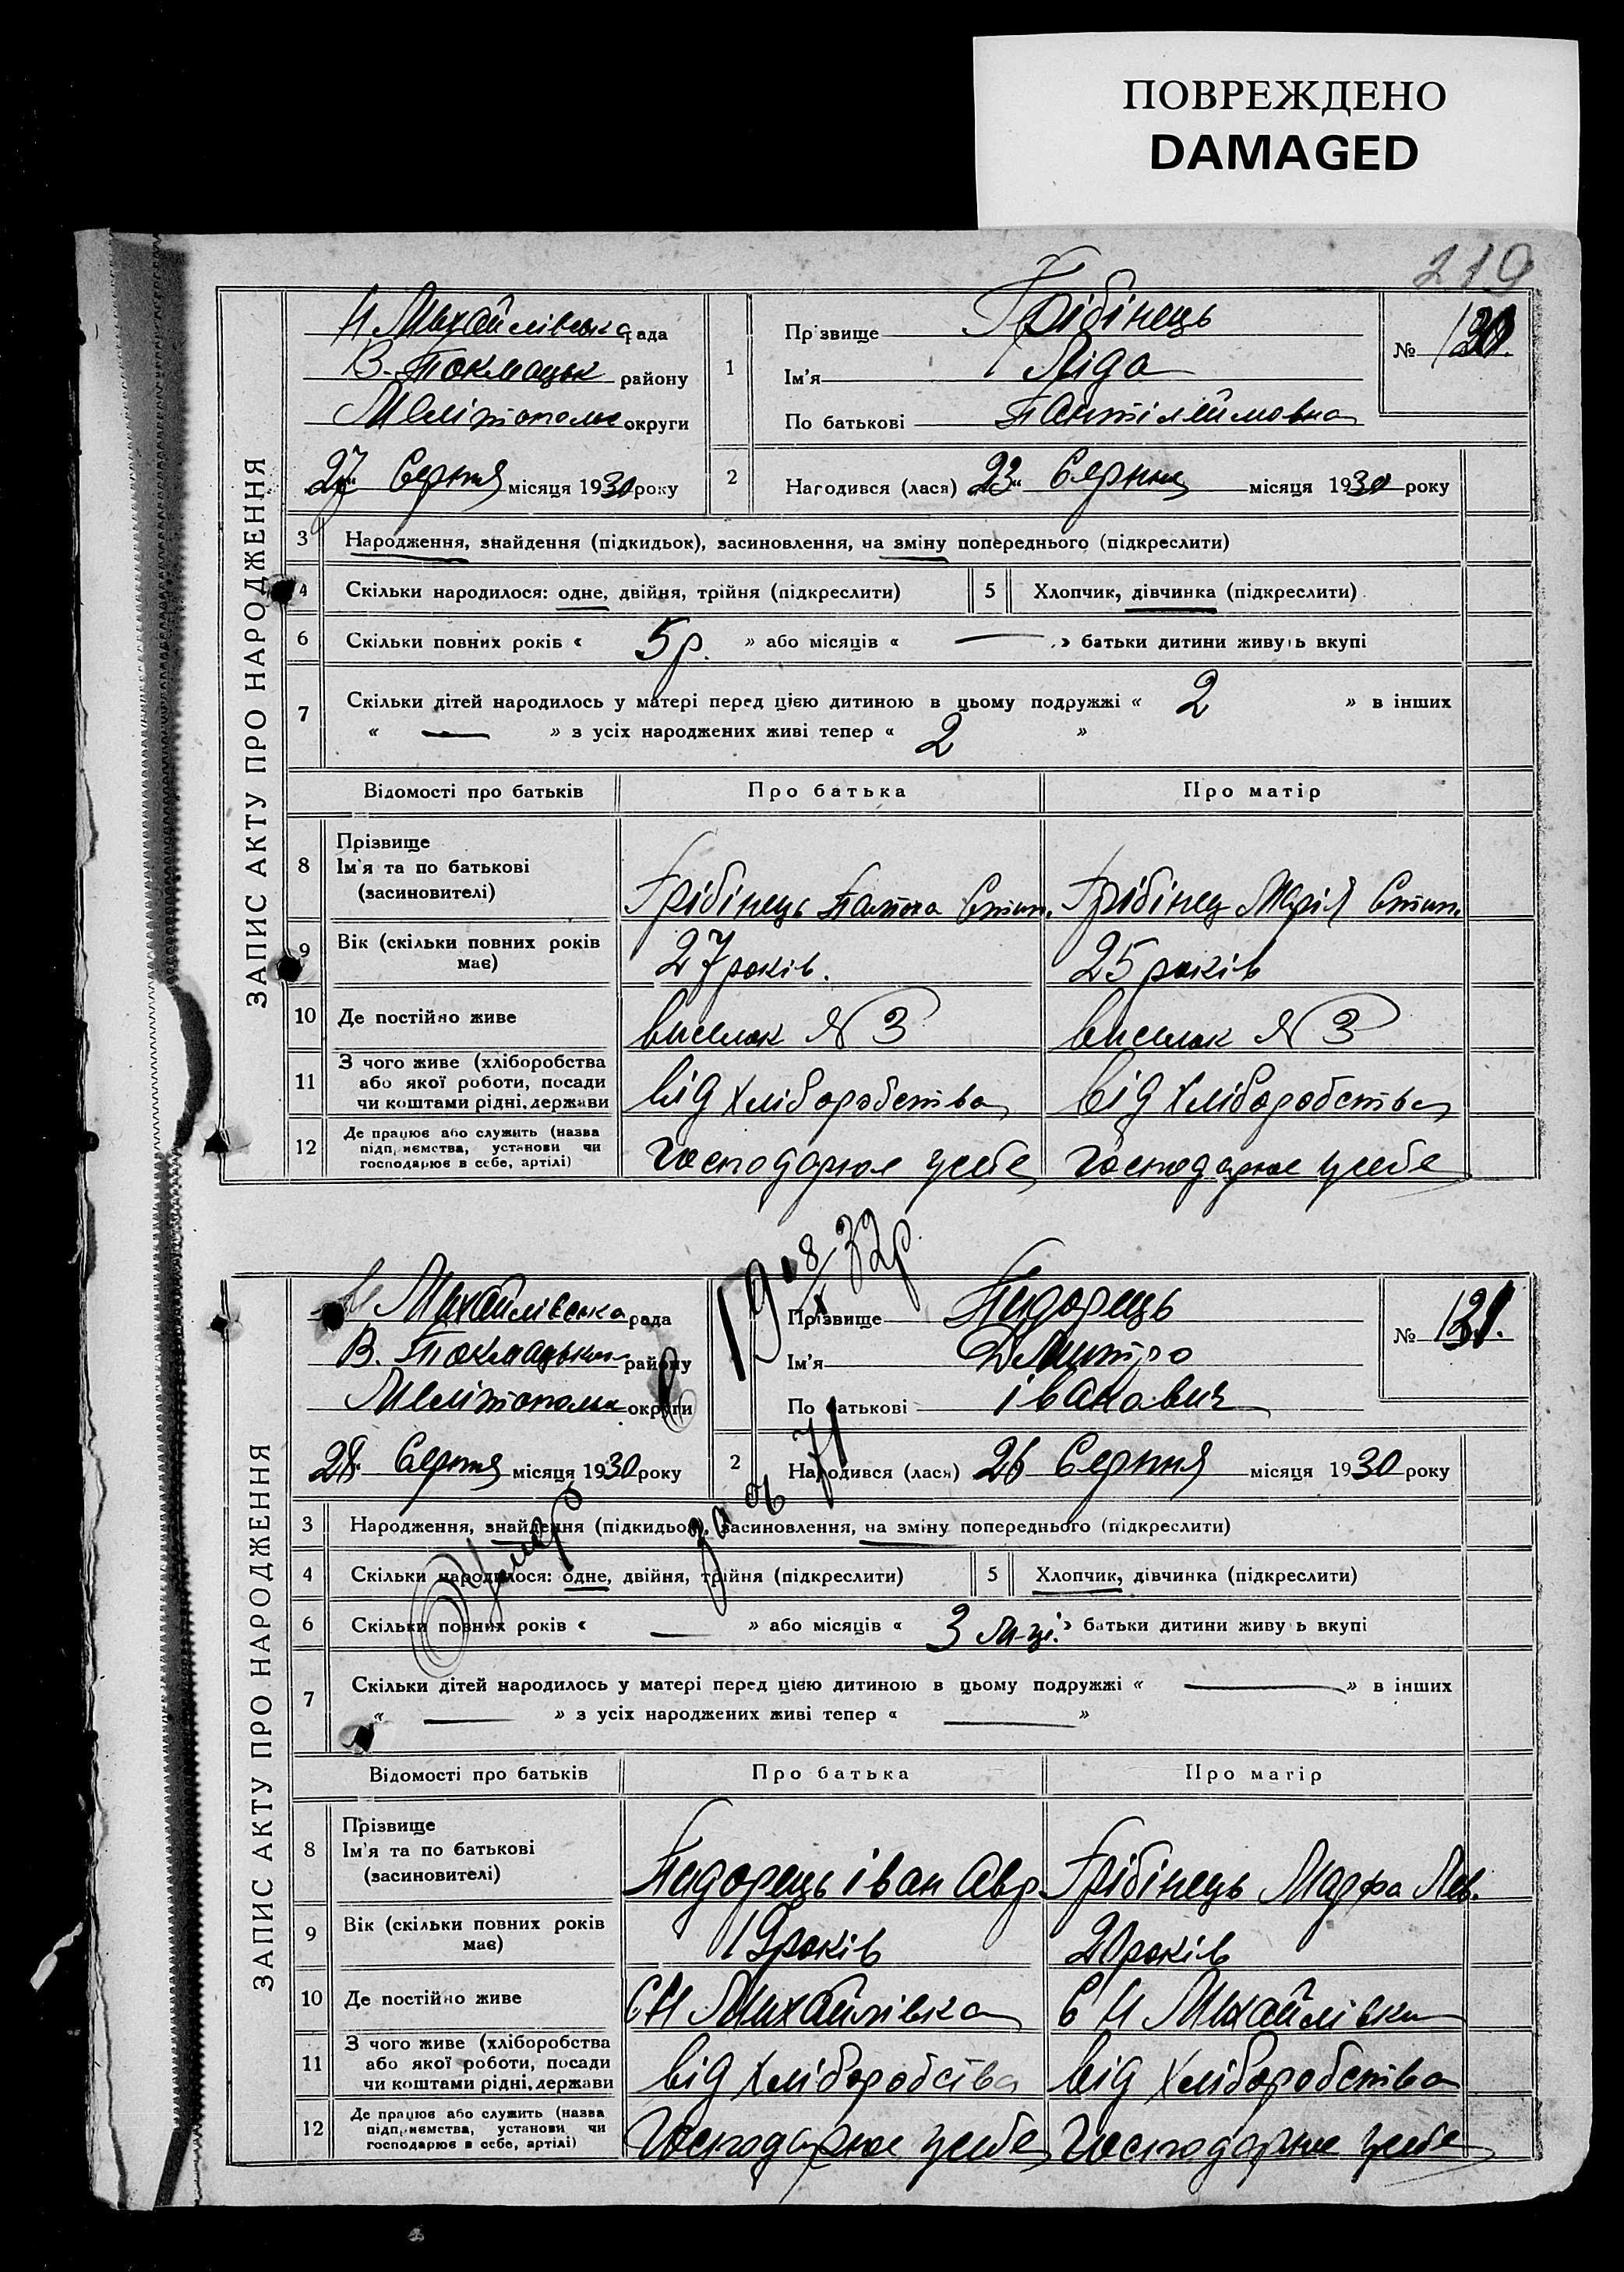 ПОВРЕЖДЕНО
DAMAGED
219
ЗАПИС АКТУ ПРО НАРОДЖЕННЯ
Н Михайлівська рада
В. Токмацьк району
Мелітопольс округи
27 Серпня місяця 1930 року
1
Прізвище Грібінець
Ім'я Ліда
По батькові Пантілеймовна
№ 130.
2
Народився (лася) 23 Серпня місяця 1930 року
3 Народження, знайдення (підкидьок), засиновлення, на зміну попереднього (підкреслити)
4 Скільки народилося: одне, двійня, трійня (підкреслити)
5 Хлопчик, дівчинка (підкреслити)
6 Скільки повних років « 5 р. » або місяців « — » батьки дитини живуть вкупі
7 Скільки дітей народилось у матері перед цією дитиною в цьому подружжі « 2 » в інших
« — » з усіх народжених живі тепер « 2 »
Відомості про батьків Про батька Про матір
8 Прізвище
Ім'я та по батькові
(засиновителі)
Грібінець Степ. Грібінец Марія Степ.
9 Вік (скільки повних років має)
27 років. 25 років
10 Де постійно живе
виселок № 3 виселок № 3
11 З чого живе (хліборобства
або якої роботи, посади
чи коштами рідні, держави
від хліборобства від хліборобства
12 Де працює або служить (назва
підприємства, установи чи
господарює в себе, артілі)
Господарює усебе Господарює усебе
ЗАПИС АКТУ ПРО НАРОДЖЕННЯ
Н Михайлівська рада
В. Токмацьк району
Мелітопольс округи
28 Серпня місяця 1930 року
1
Прізвище Пидорець
Ім'я Дмитро
По батькові іванович
№ 131.
2
Народився (лася) 26 Серпня місяця 1930 року
19 8/X 32р.
Умер
за № 71
3 Народження, знайдення (підкидьок), засиновлення, на зміну попереднього (підкреслити)
4 Скільки народилося: одне, двійня, трійня (підкреслити)
5 Хлопчик, дівчинка (підкреслити)
6 Скільки повних років « — » або місяців « 3 м-ці. » батьки дитини живуть вкупі
7 Скільки дітей народилось у матері перед цією дитиною в цьому подружжі « — » в інших
« — » з усіх народжених живі тепер « — »
Відомості про батьків Про батька Про матір
8 Прізвище
Ім'я та по батькові
(засиновителі)
Пидорець іван Авр. Грібінець Марфа Лев.
9 Вік (скільки повних років має)
19 років 20 років
10 Де постійно живе
С Н Михайлівка С Н Михайлівка
11 З чого живе (хліборобства
або якої роботи, посади
чи коштами рідні, держави
від хліборобства від хліборобства
12 Де працює або служить (назва
підприємства, установи чи
господарює в себе, артілі)
Господарює усебе Господарює усебе